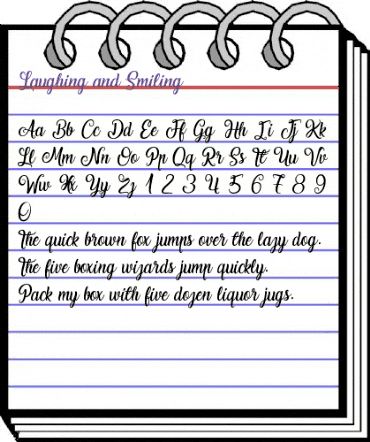 Laughing and Smiling
Aa Bb Cc Dd Ee Ff Gg Hh Ii Jj Kk
Ll Mm Nn Oo Pp Qq Rr Ss Tt Uu Vv
Ww Xx Yy Zz 1 2 3 4 5 6 7 8 9
0
The quick brown fox jumps over the lazy dog.
The five boxing wizards jump quickly.
Pack my box with five dozen liquor jugs.